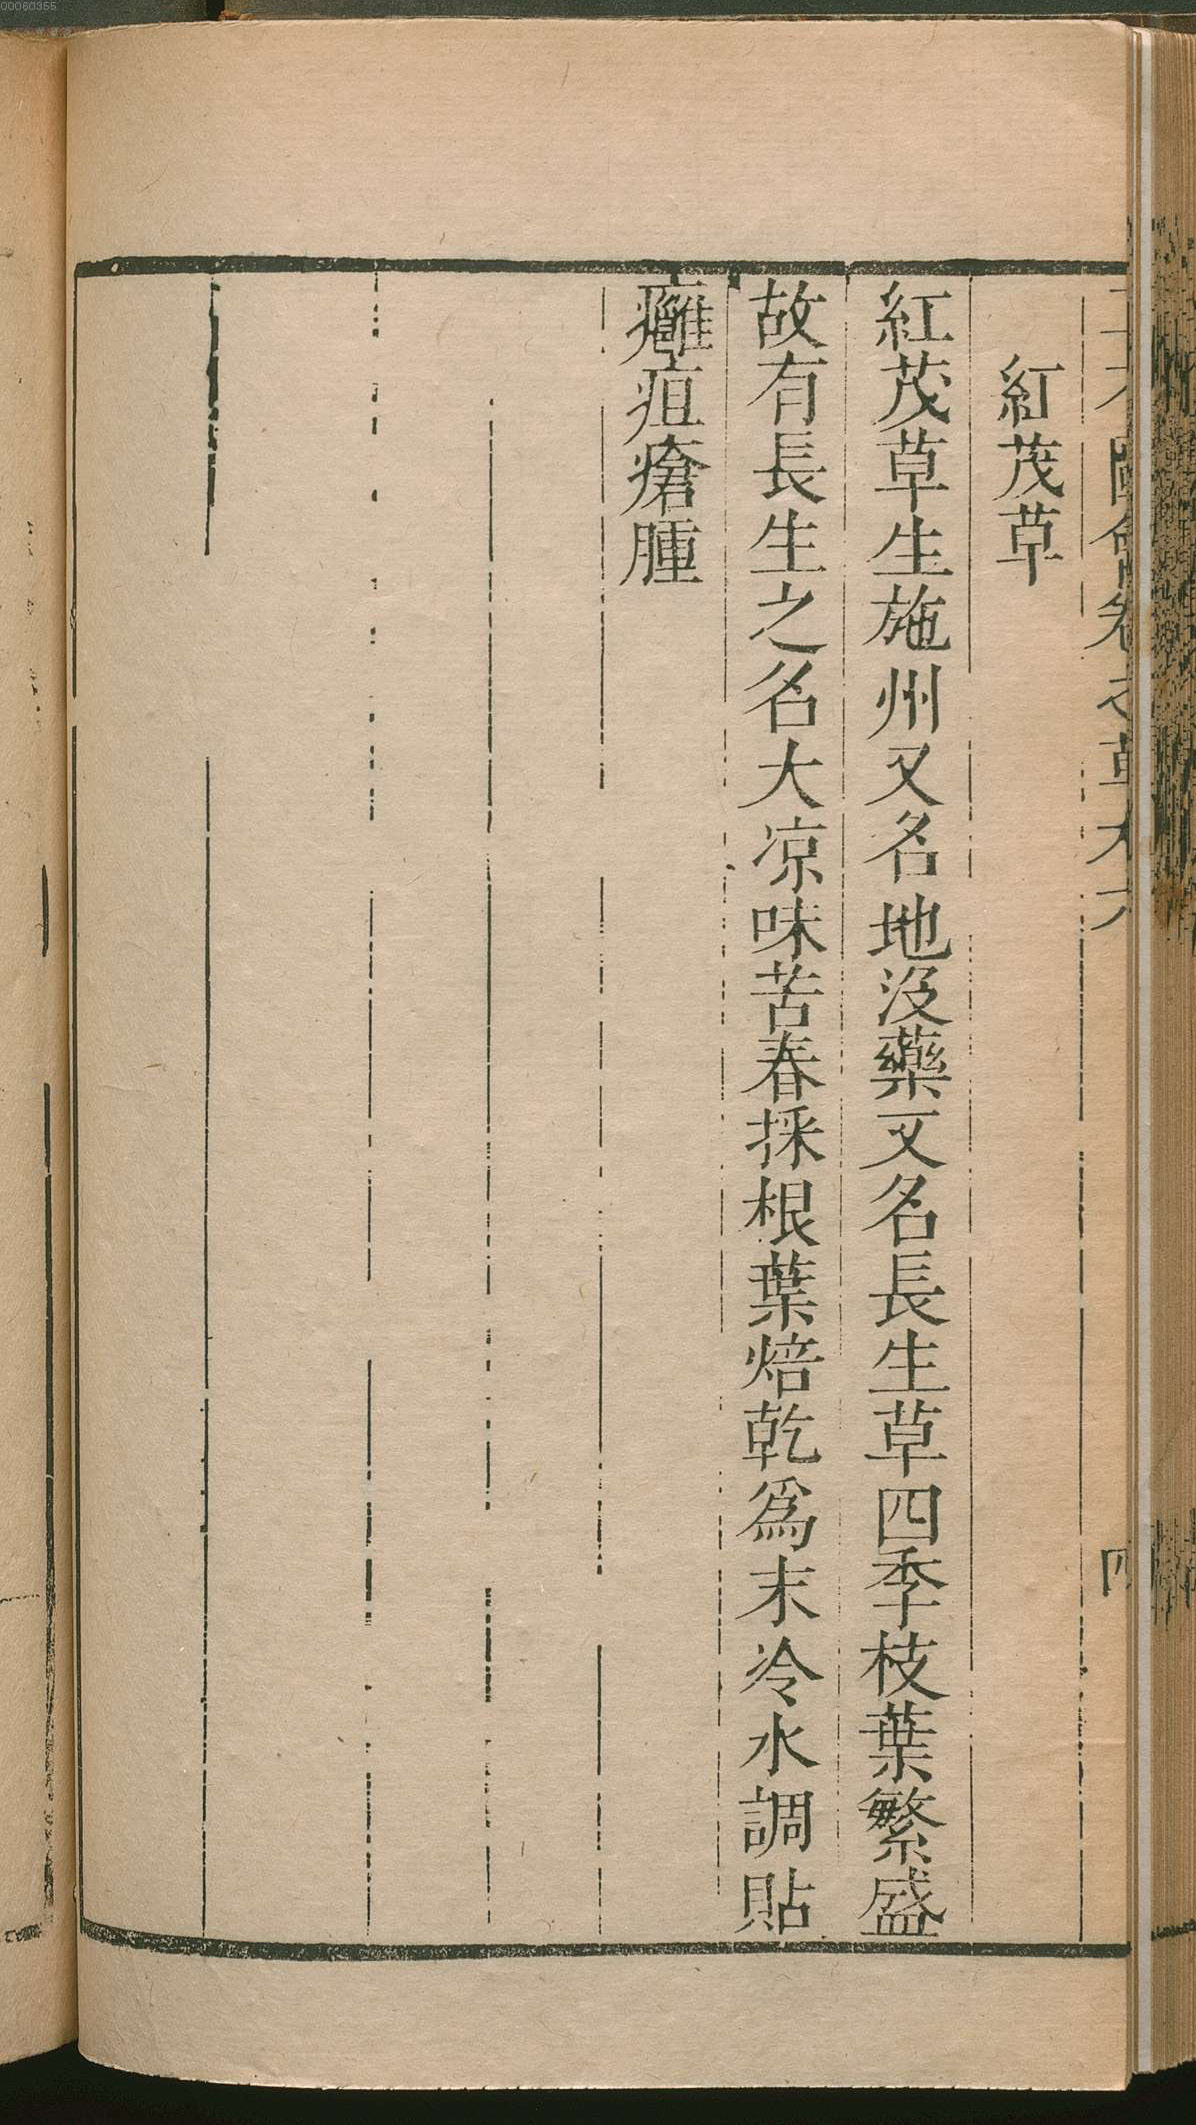 00060355
紅茂草
紅茂草生施州又名地没藥又名長生草四季枝葉繁盛
故有長生之名大凉味苦春採根葉焙乾爲末冷水調貼
癰疽瘡腫